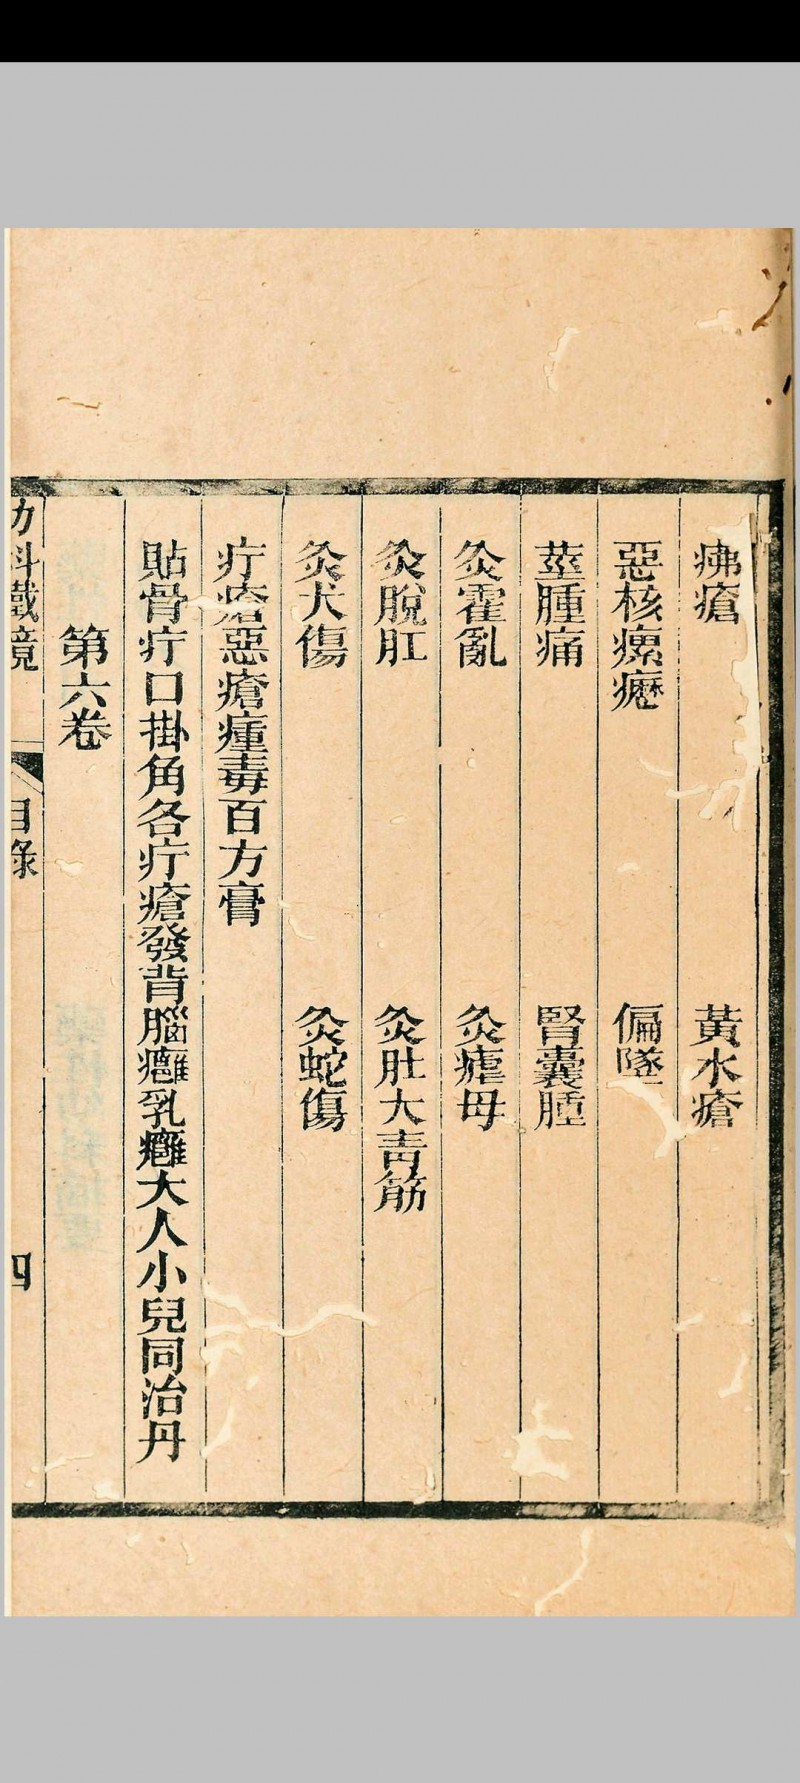 疿瘡 黃水瘡
惡核瘰癧 偏墜
莖腫痛 腎囊腫
灸霍亂 灸瘧母
灸脫肛 灸肚大青筋
灸犬傷 灸蛇傷
疔瘡惡瘡瘇毒百方膏
貼骨疔口掛角各疔瘡發背腦癰乳癰大人小兒同治丹
第六卷
幼科鐵鏡 目錄 四